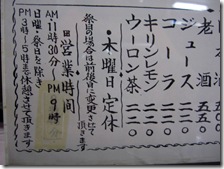 老酒 五五〇
ジュース 二二〇
コーラ 二二〇
キリンレモン 二二〇
ウーロン茶 二二〇
・木曜日定休
祭日の場合は前後日に変更させて頂きます
営業時間
AM11時30分~PM9時
日曜・祭日を除き
PM3時~5時迄休憩させて頂きます